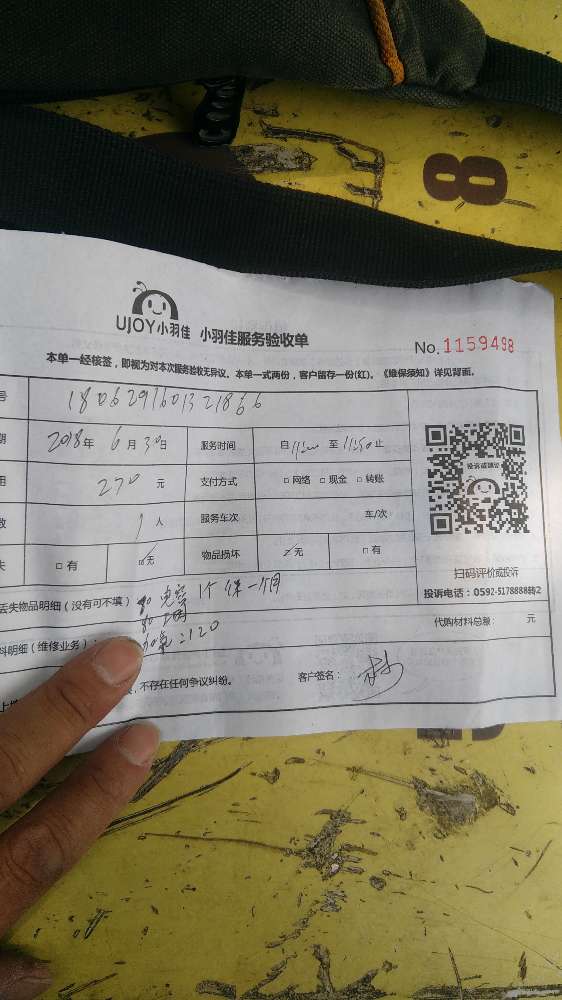 8
UJOY小羽佳 小羽佳服务验收单
No. 1159498
本单一经核签，即视为对本次服务验收无异议。本单一式两份，客户留存一份(红)。《维保须知》详见背面。
号 1806291601321866
期 2018年 6月30日 服务时间 自 至 止
用 270 元 支付方式 □网络 □现金 □转账
数 1 人 服务车次 车/次
失 □有 □无 物品损坏 □无 □有
投诉或建议
扫码评价或投诉
投诉电话：0592-5178888转2
丢失物品明细（没有可不填） 1个 保一个月
料明细（维修业务）： =120 代购材料总额： 元
，不存在任何争议纠纷。 客户签名：